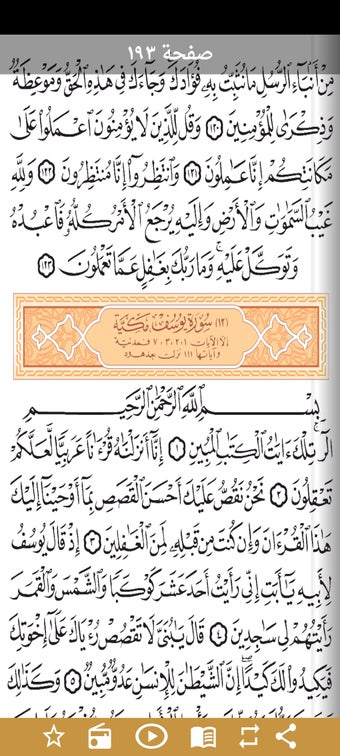 صفحة ١٩٣
مِنْ أَنۢبَآءِ ٱلرُّسُلِ مَا نُثَبِّتُ بِهِۦ فُؤَادَكَ وَجَآءَكَ فِى هَٰذِهِ ٱلْحَقُّ وَمَوْعِظَةٌ
وَذِكْرَىٰ لِلْمُؤْمِنِينَ ﴿١٢٠﴾ وَقُل لِّلَّذِينَ لَا يُؤْمِنُونَ ٱعْمَلُوا۟ عَلَىٰ
مَكَانَتِكُمْ إِنَّا عَٰمِلُونَ ﴿١٢١﴾ وَٱنتَظِرُوٓا۟ إِنَّا مُنتَظِرُونَ ﴿١٢٢﴾ وَلِلَّهِ
غَيْبُ ٱلسَّمَٰوَٰتِ وَٱلْأَرْضِ وَإِلَيْهِ يُرْجَعُ ٱلْأَمْرُ كُلُّهُۥ فَٱعْبُدْهُ
وَتَوَكَّلْ عَلَيْهِ ۚ وَمَا رَبُّكَ بِغَٰفِلٍ عَمَّا تَعْمَلُونَ ﴿١٢٣﴾
(١٢) سُورَة يُوسُف مَكيَّة
إلا الآيات ١، ٢، ٣، ٧ فمدنية
وآياتها ١١١ نزلت بعد هود
بِسْمِ ٱللَّهِ ٱلرَّحْمَٰنِ ٱلرَّحِيمِ
الٓر ۚ تِلْكَ ءَايَٰتُ ٱلْكِتَٰبِ ٱلْمُبِينِ ﴿١﴾ إِنَّآ أَنزَلْنَٰهُ قُرْءَٰنًا عَرَبِيًّا لَّعَلَّكُمْ
تَعْقِلُونَ ﴿٢﴾ نَحْنُ نَقُصُّ عَلَيْكَ أَحْسَنَ ٱلْقَصَصِ بِمَآ أَوْحَيْنَآ إِلَيْكَ
هَٰذَا ٱلْقُرْءَانَ وَإِن كُنتَ مِن قَبْلِهِۦ لَمِنَ ٱلْغَٰفِلِينَ ﴿٣﴾ إِذْ قَالَ يُوسُفُ
لِأَبِيهِ يَٰٓأَبَتِ إِنِّى رَأَيْتُ أَحَدَ عَشَرَ كَوْكَبًا وَٱلشَّمْسَ وَٱلْقَمَرَ
رَأَيْتُهُمْ لِى سَٰجِدِينَ ﴿٤﴾ قَالَ يَٰبُنَىَّ لَا تَقْصُصْ رُءْيَاكَ عَلَىٰٓ إِخْوَتِكَ
فَيَكِيدُوا۟ لَكَ كَيْدًا ۖ إِنَّ ٱلشَّيْطَٰنَ لِلْإِنسَٰنِ عَدُوٌّ مُّبِينٌ ﴿٥﴾ وَكَذَٰلِكَ